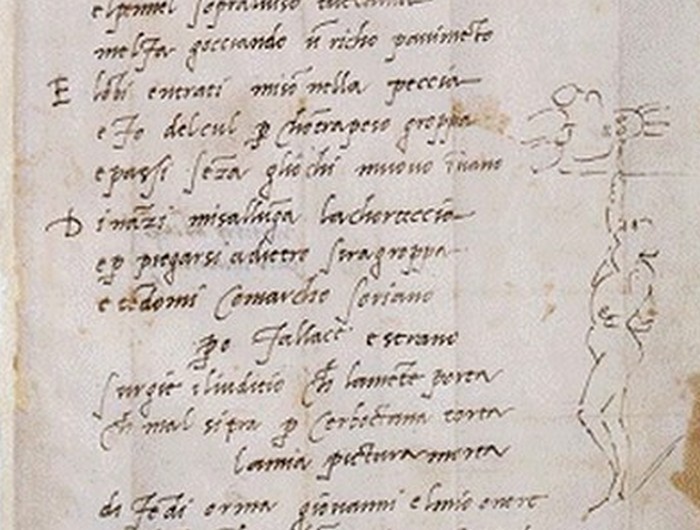 elpennel sopraluiso tuctavia
mel fa gocciando ũ richo pavimẽto
E lõbi entrati miso nella peccia
e fo delcul p chõtrapeso groppa
e passi sẽza gliochi muovo ĩvano
D inãzi misallũga lachorteccia
e p piegarsi adietro siragroppa
e tẽdomi Comarcho Soriano
po fallace e strano
surgie iliuditio ch̃ lamẽte porta
ch̃ mal sitra p Cerboctana torta
lamia pictura morta
di fẽdi orma giovanni elmio onore